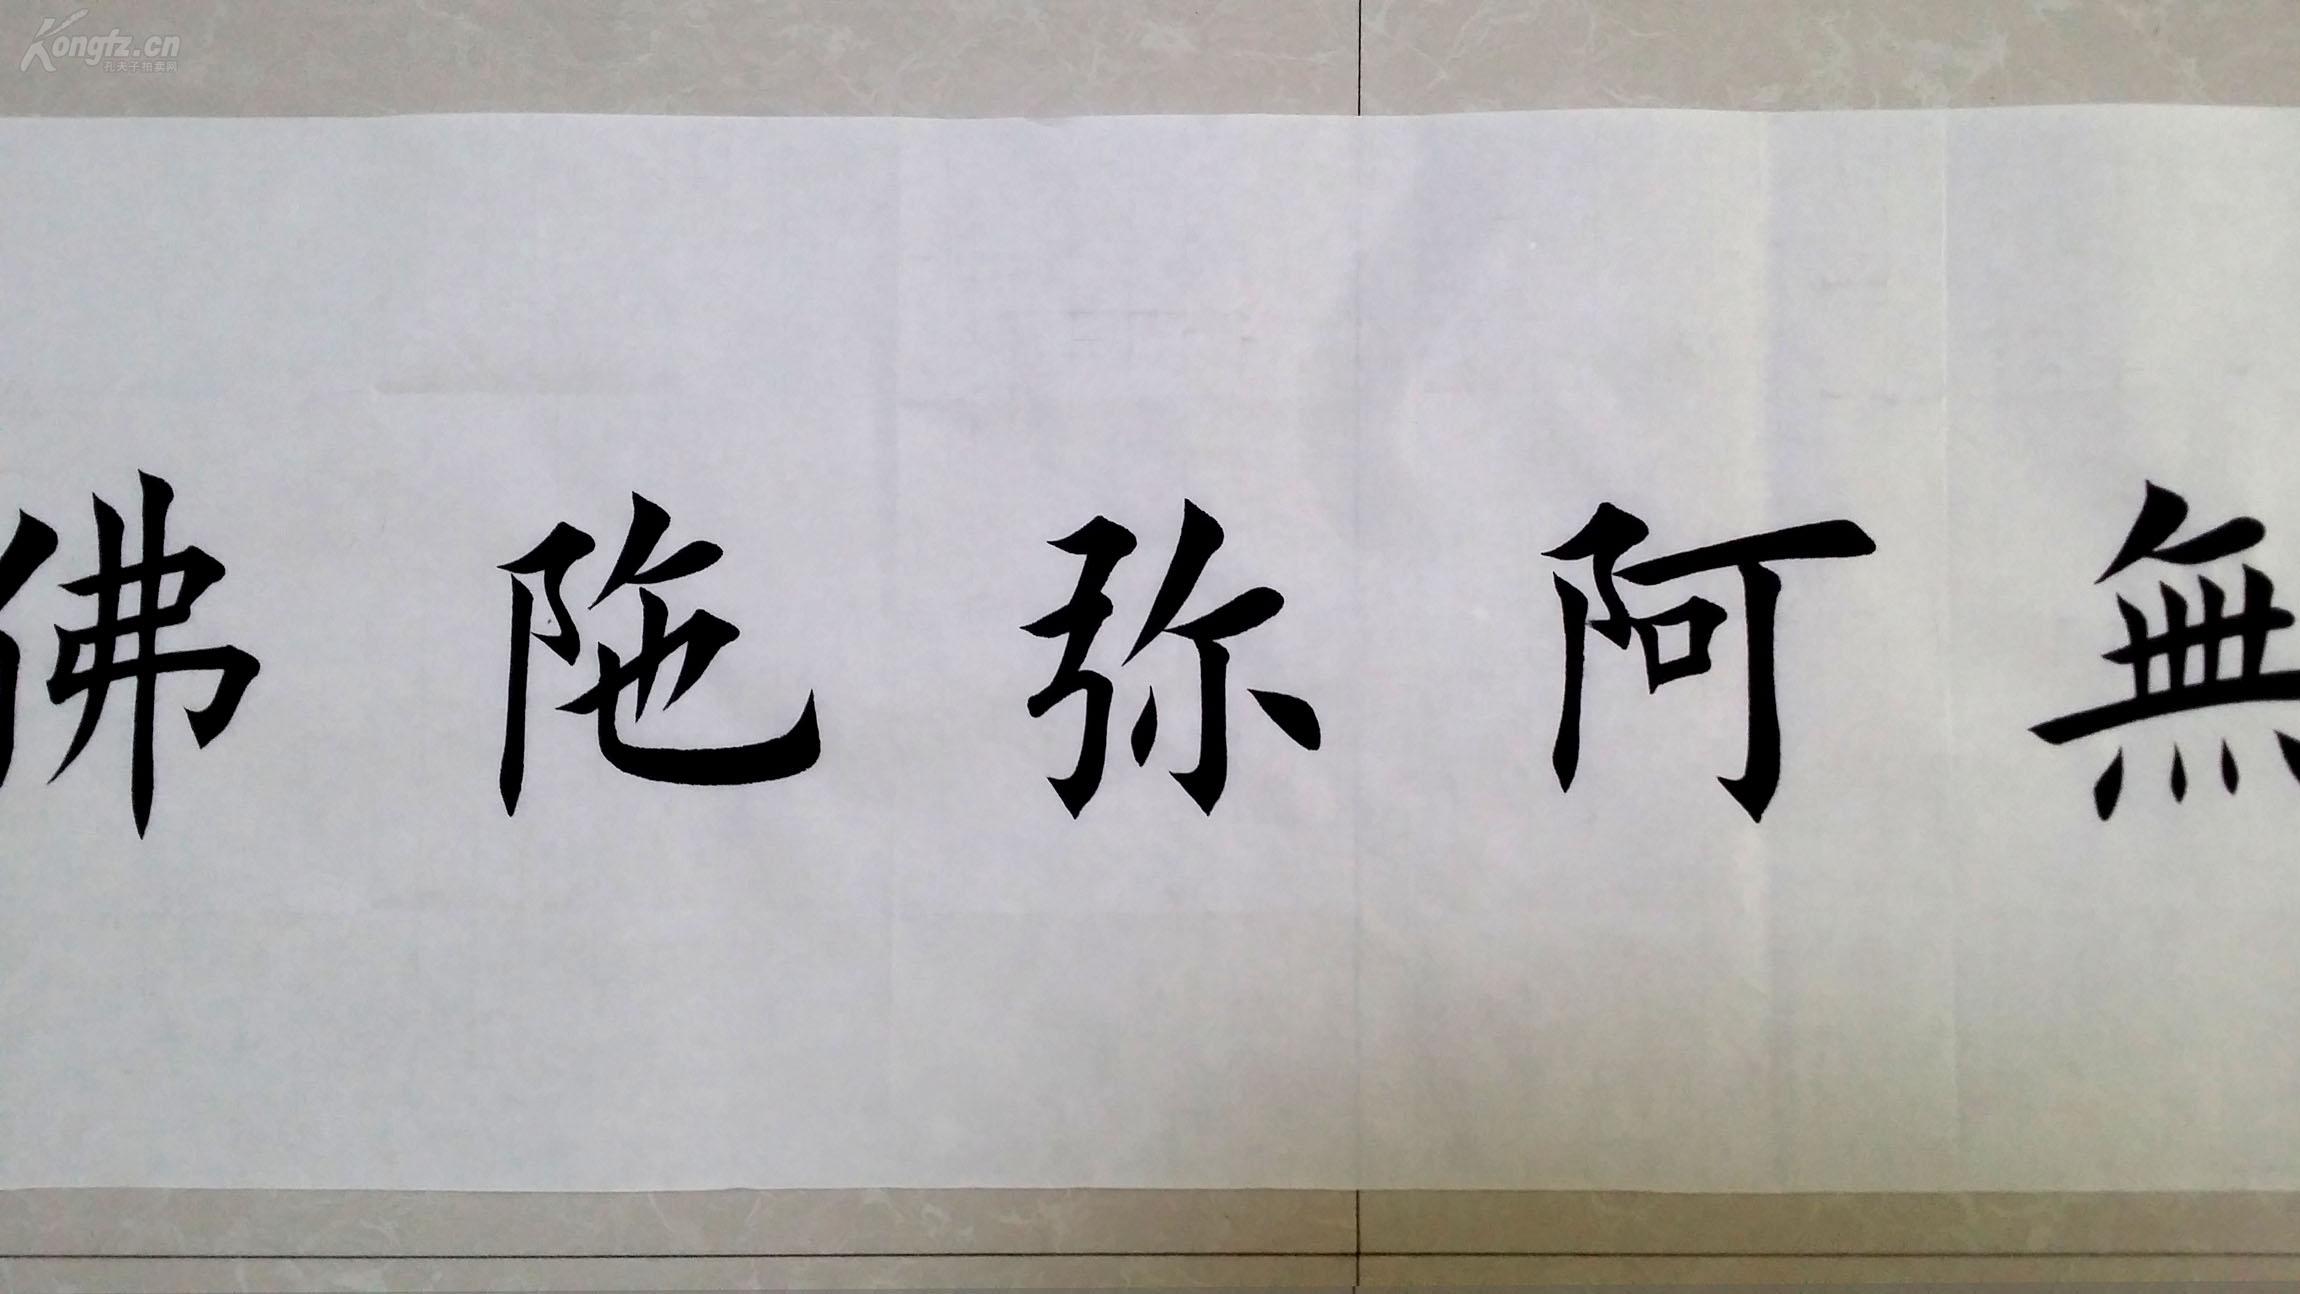 Kongfz.cn
孔夫子拍卖网
無阿弥陀佛